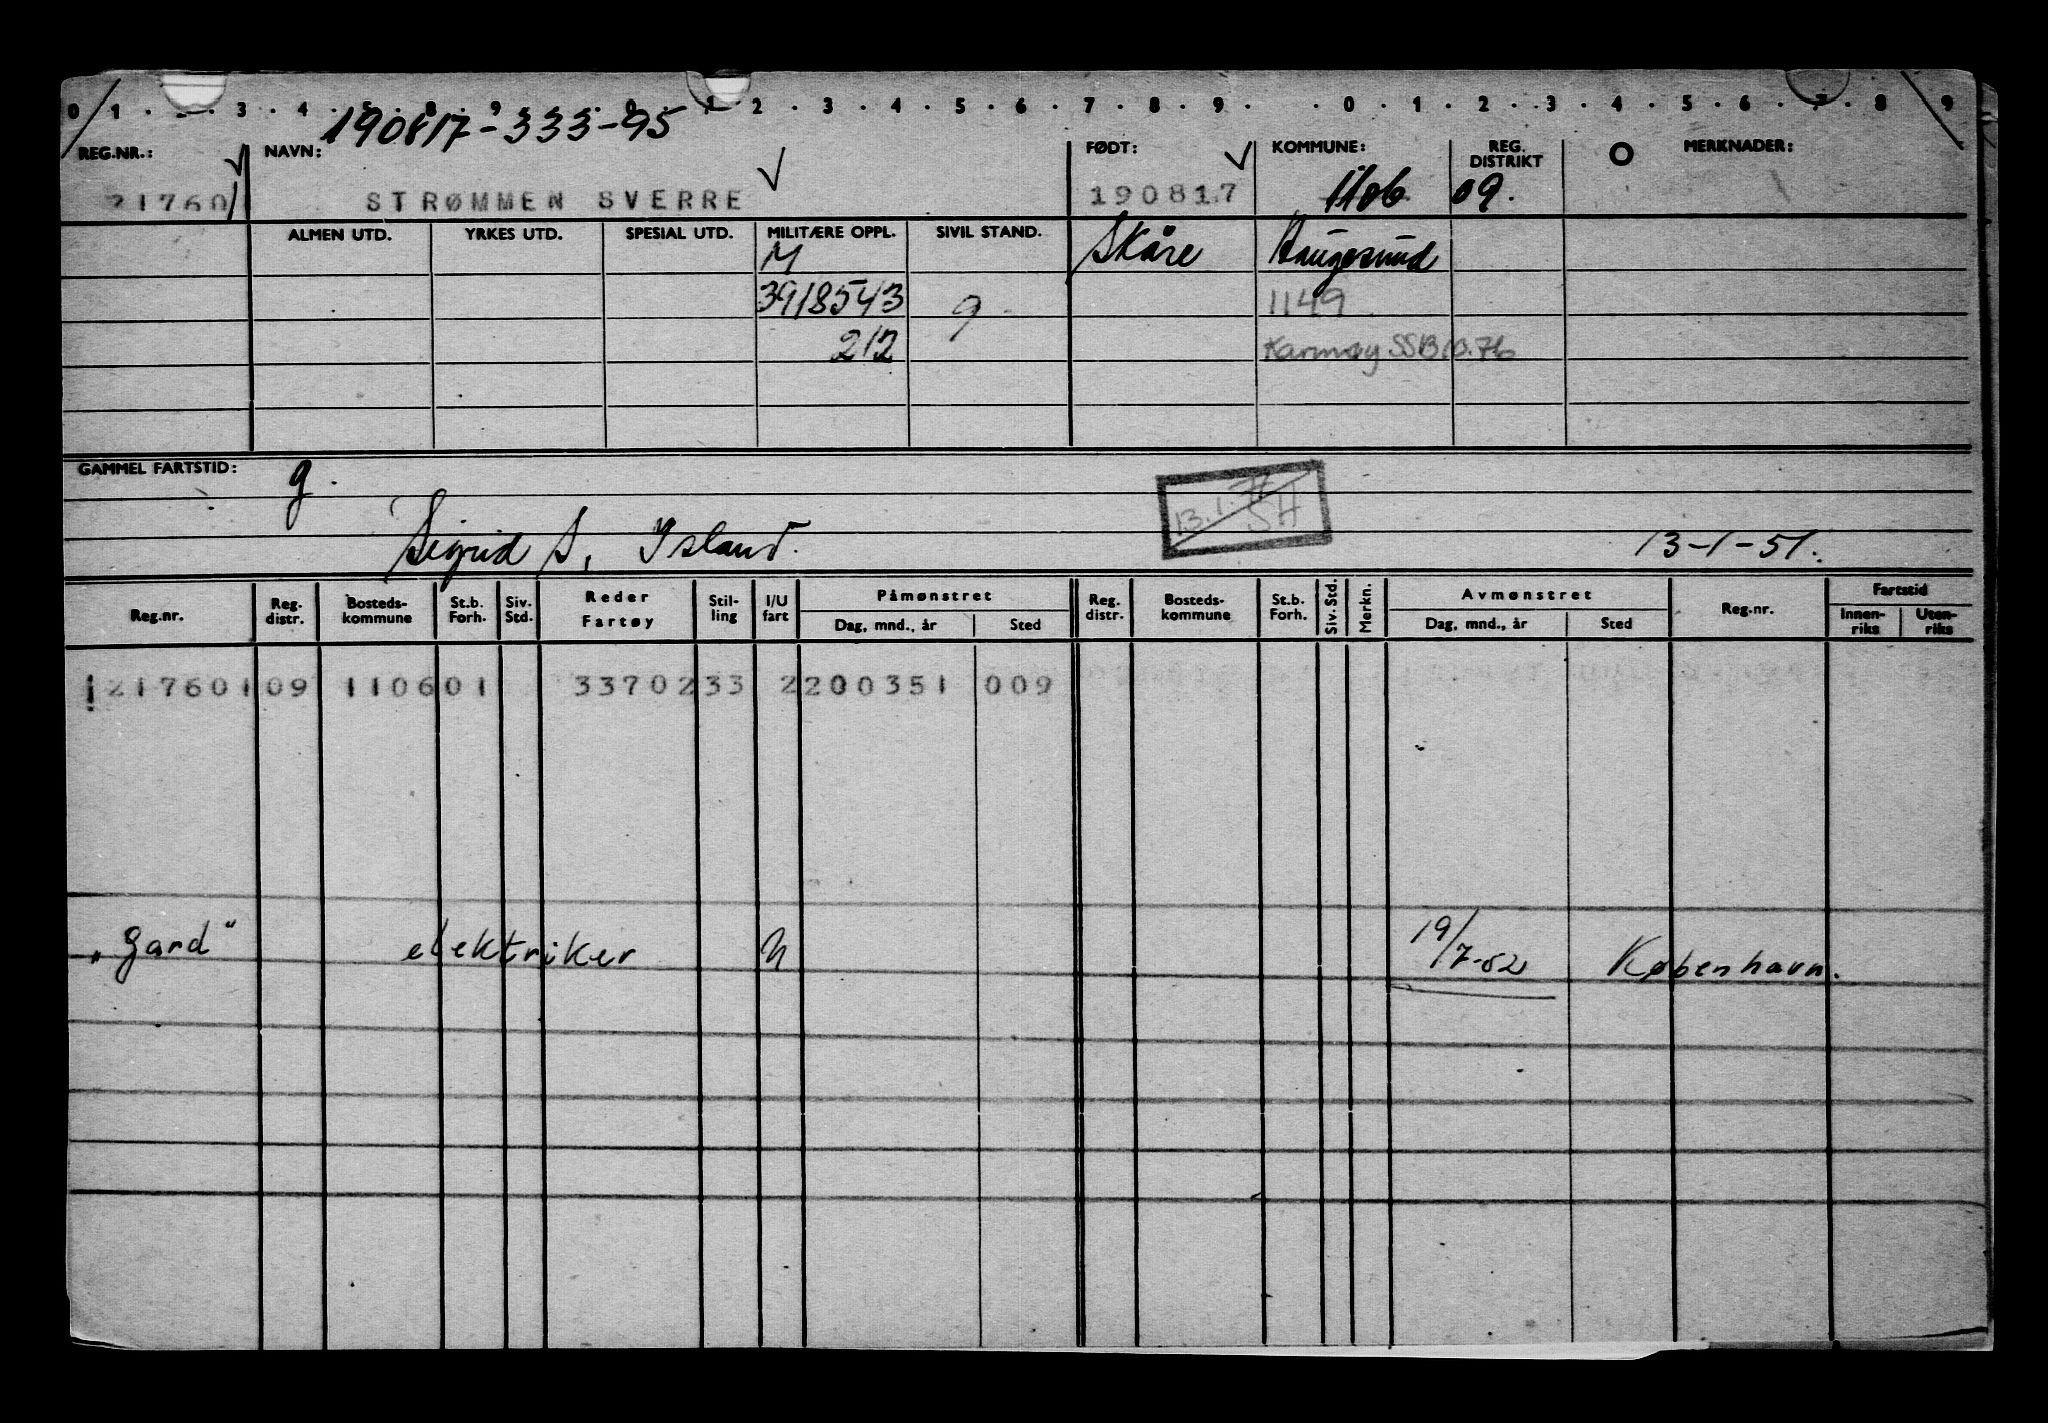 0 1 . . 3 . 4 . 5 . 8 . 9 . . 0 . 1 2 . 3 . 4 . 5 . 6 . 7 . 8 . 9 . . 0 . 1 . 2 . . 3 . 4 . 5 . 6 . 7 . 8 9
190817-333-95
REG.NR.: NAVN: FØDT: KOMMUNE: REG. DISTRIKT MERKNADER:
217601 STRØMMEN SVERRE 190817 1106 09.
ALMEN UTD. YRKES UTD. SPESIAL UTD. MILITÆRE OPPL. SIVIL STAND. Skåre Haugesund
M
3918543 g 1149
212 Karmøy SSB 10.76
GAMMEL FARTSTID: g.
13.1. SH
Sigrid S, Island. 13-1-51.
Reg.nr. Reg. distr. Bosteds-kommune St.b. Forh. Siv. Std. Reder Fartøy Stil-ling I/U fart Påmønstret Dag, mnd., år Sted Reg. distr. Bosteds-kommune St.b. Forh. Siv. Std. Merkn. Avmønstret Dag, mnd., år Sted Reg.nr. Fartstid Innen-riks Uten-riks
217601 09 1106 01 33702 33 2 200351 009
"Gard" elektriker 19/7-52 København.